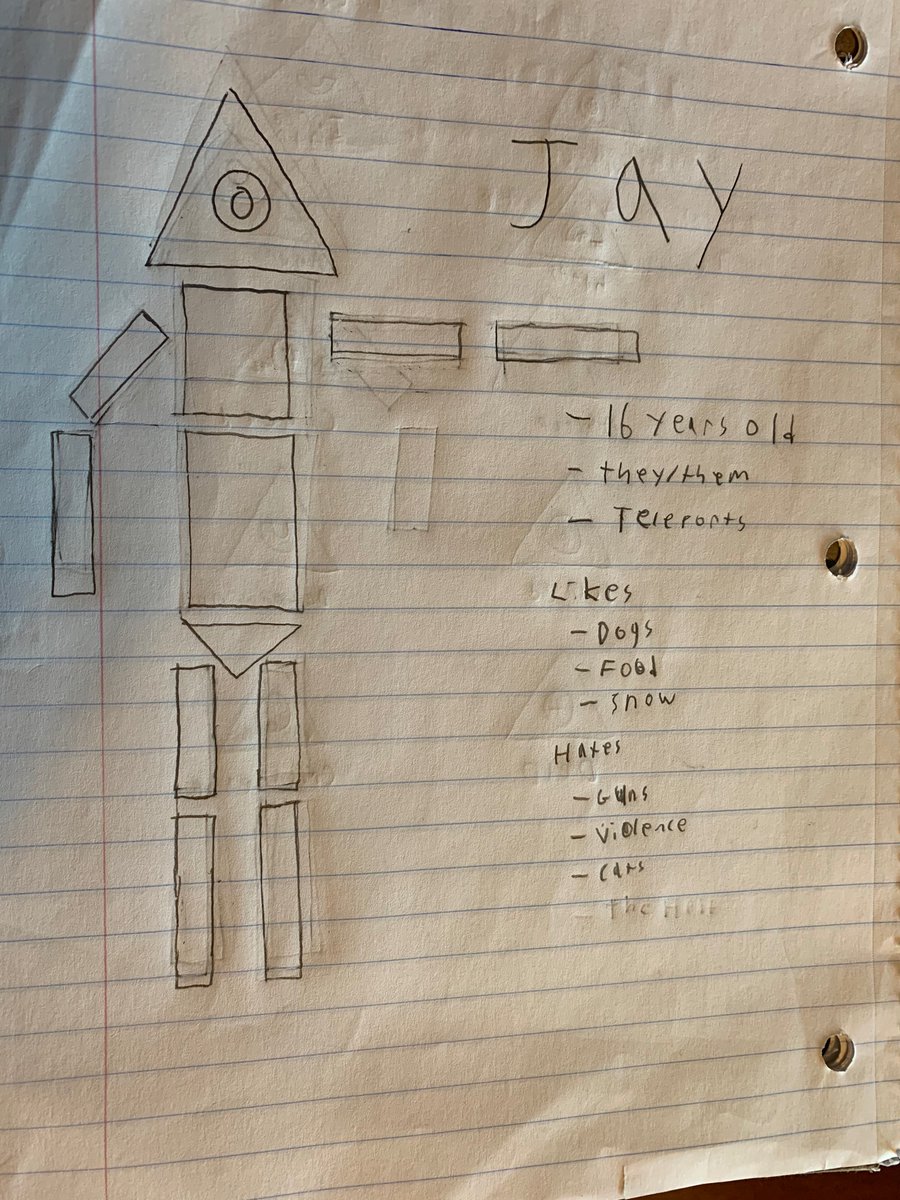 Jay
- 16 years old
- they/them
- Teleports
Likes
- Dogs
- Food
- Snow
Hates
- Guns
- Violence
- Cars